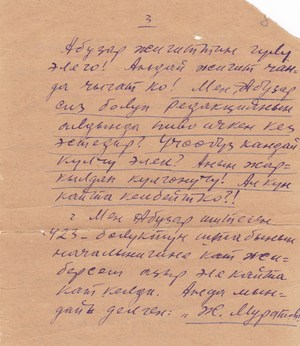 3
8
Абузар жигиттин гүлү
эле го! Андай жигит чан-
да чыгат ко! Мен, Абузар
сиз болуп редакциянын
алдында пиво ичкен кез
эстедир? Учообуз кандай
күлчү элек? Анын жар-
кылдап күлгөнүчү! Ал күн
кайта келбейт ко?!
Мен Абузар иштеген
423- полуктун штабынын
начальнигине кат жи-
берсем азыр эле кайта
кат келди. Анда мын-
дайы делген: „Ж. Муратов